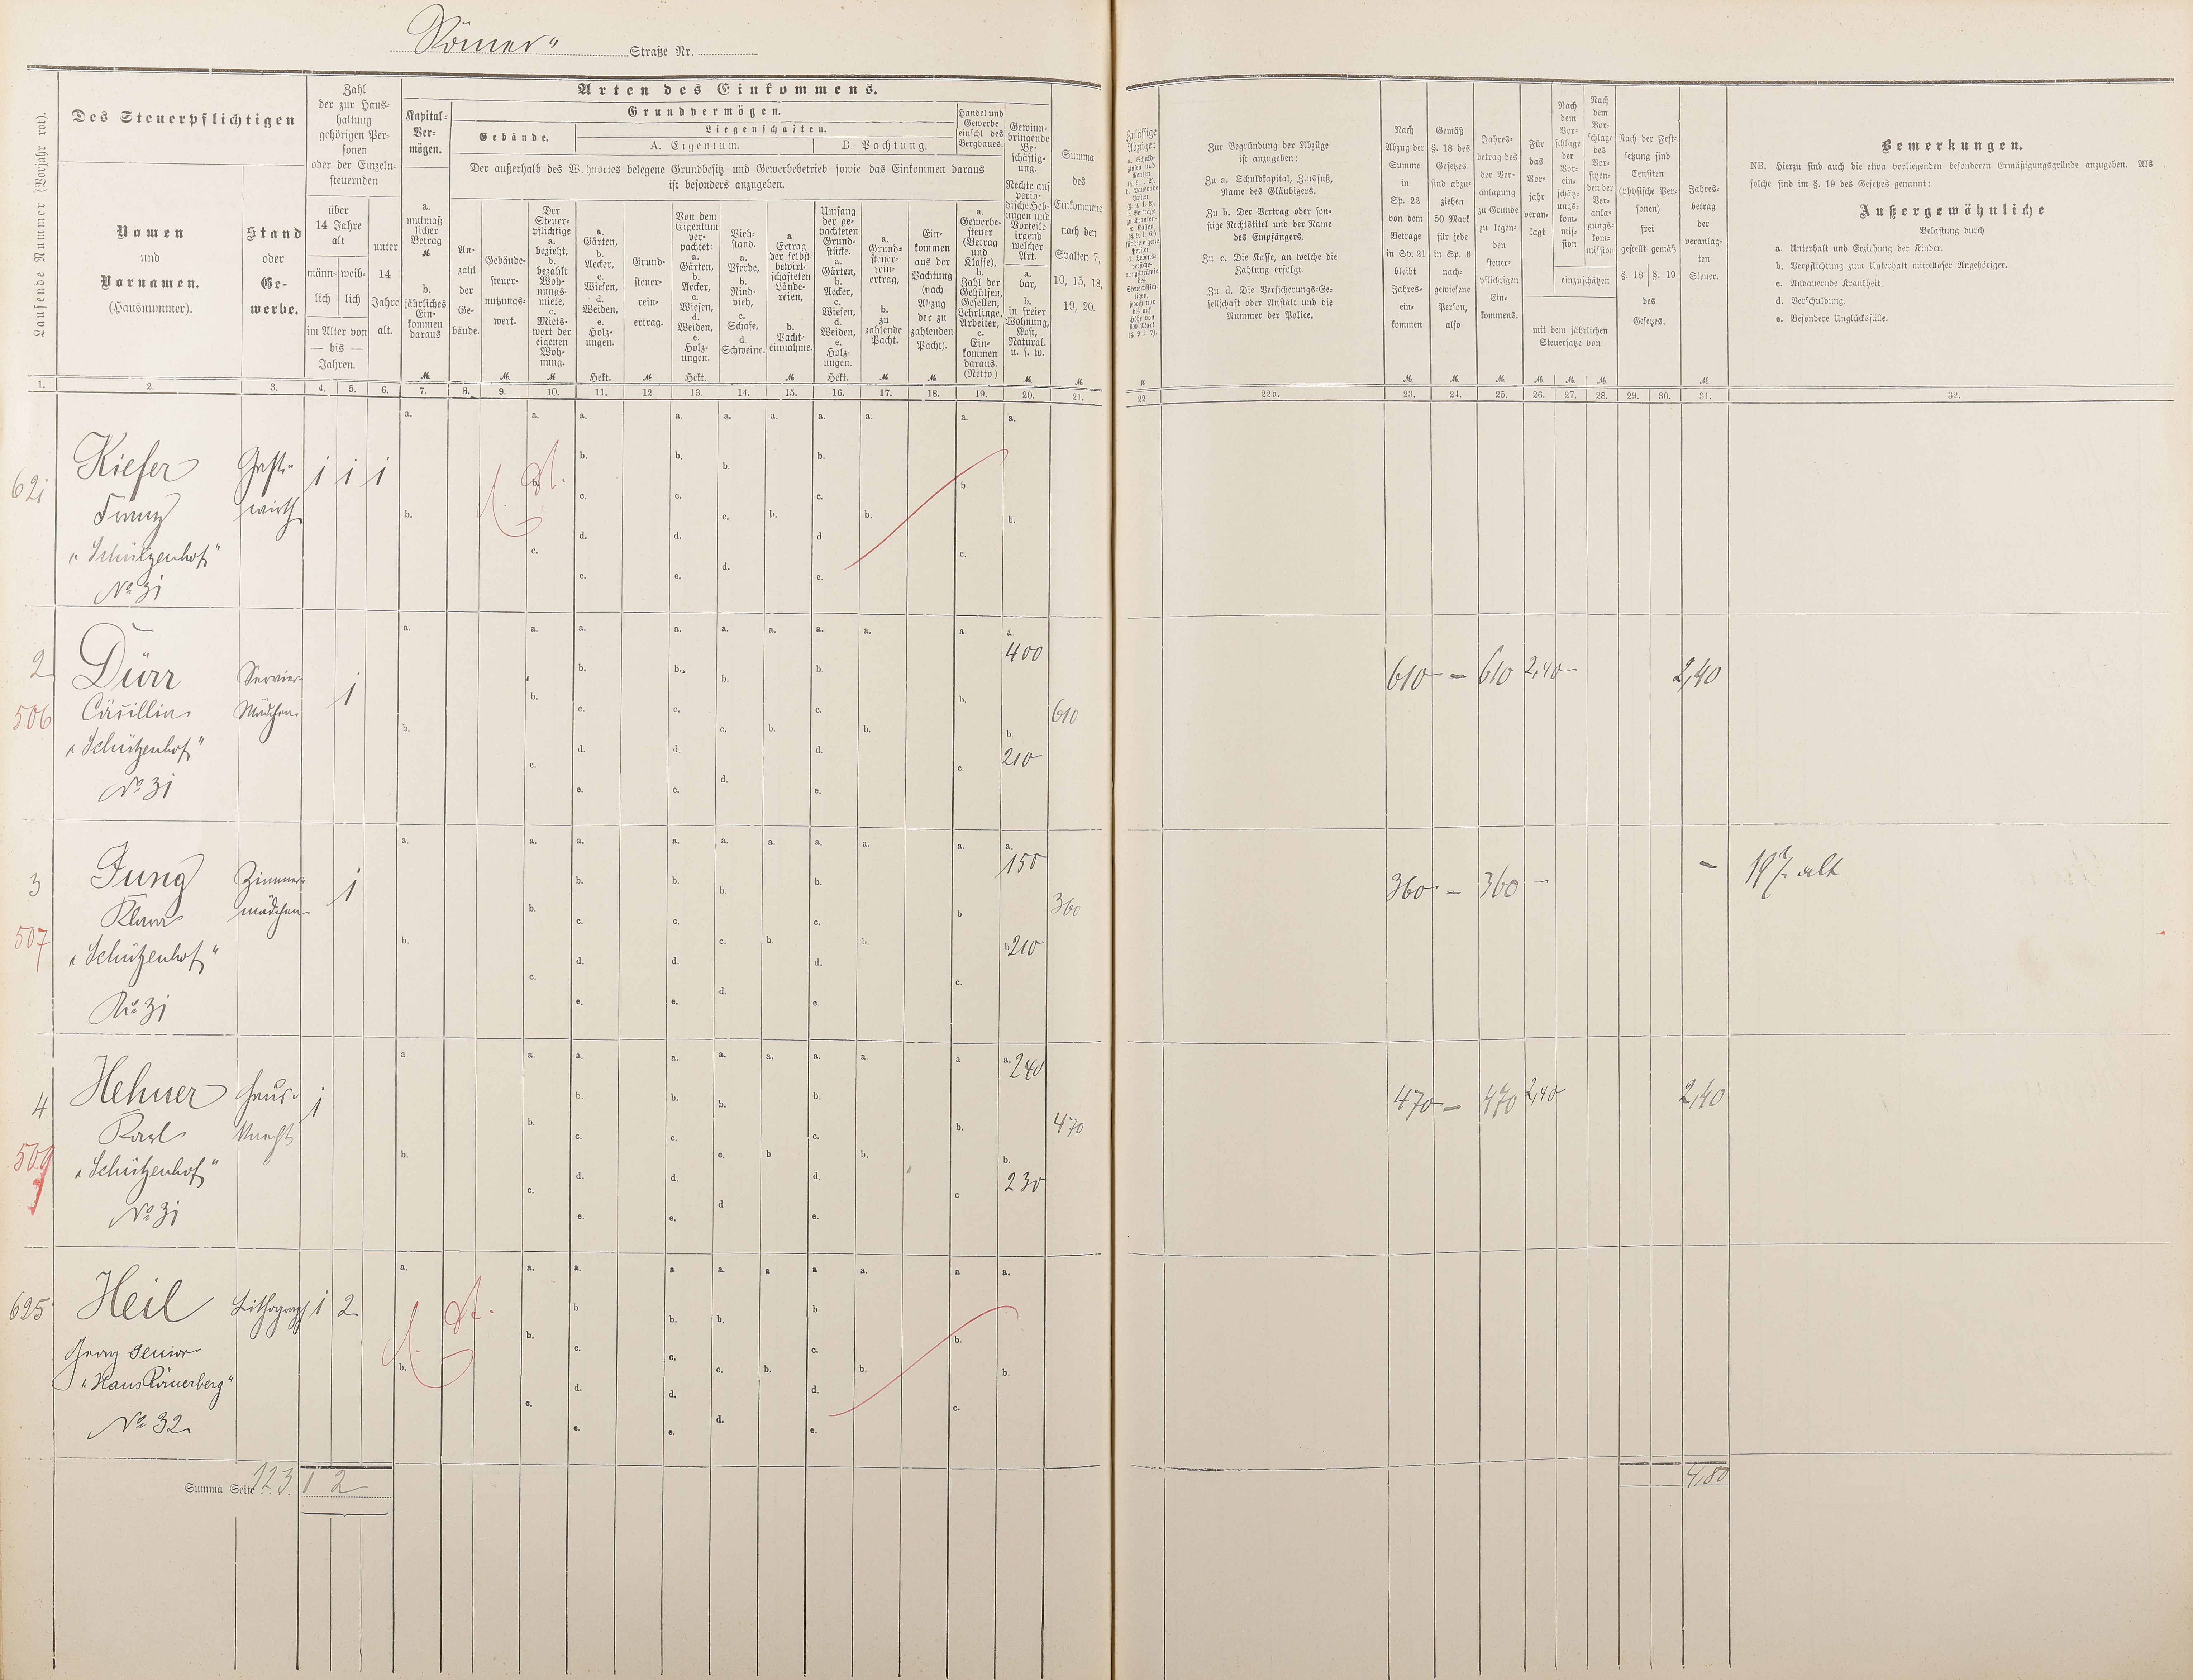 Römer" Straße Nr.
Laufende Nummer (Vorjahr rot).
Des Steuerpflichtigen
Namen
und
Vornamen.
(Hausnummer).
Stand
oder
Ge-
werbe.
Zahl
der zur Haus-
haltung
gehörigen Per-
sonen
oder der Einzeln-
steuernden
über
14 Jahre
alt
männ-
lich
weib-
lich
im Alter von
— bis —
Jahren.
unter
14
Jahre
alt.
Arten des Einkommens.
Kapital-
Ver-
mögen.
a.
mutmaß
licher
Betrag
M
b.
jährliches
Ein-
kommen
daraus
M.
Grundvermögen.
Gebäude.
Liegenschaften.
A. Eigentum.
B Pachtung.
Der außerhalb des Wohnortes belegene Grundbesitz und Gewerbebetrieb sowie das Einkommen daraus
ist besonders anzugeben.
An-
zahl
der
Ge-
bäude.
Gebäude-
steuer-
nutzungs-
wert.
M.
Der
Steuer-
pflichtige
a.
bezieht,
b.
bezahlt
Woh-
nungs-
miete,
c.
Miets-
wert der
eigenen
Woh-
nung.
M
a.
Gärten,
b.
Aecker,
c.
Wiesen,
d.
Weiden,
e.
Holz-
ungen.
Hekt.
Grund-
steuer-
rein-
ertrag.
M
Von dem
Eigentum
ver-
pachtet:
a.
Gärten,
b.
Aecker,
c.
Wiesen,
d.
Weiden,
e.
Holz-
ungen.
Hekt.
Vieh-
stand.
a.
Pferde,
b.
Rind-
vieh,
c.
Schafe,
d.
Schweine.
a.
Ertrag
der selbst-
bewirt-
schafteten
Lände-
reien,
b.
Pacht-
einnahme.
M
Umfang
der ge-
pachteten
Grund-
stücke.
a.
Gärten,
b.
Aecker,
c.
Wiesen,
d.
Weiden,
e.
Holz-
ungen.
Hekt.
a.
Grund-
steuer-
rein-
ertrag,
b.
zu
zahlende
Pacht.
M
Ein-
kommen
aus der
Pachtung
(nach
Abzug
der zu
zahlenden
Pacht).
M
Handel und
Gewerbe
einschl des
Bergbaues.
a.
Gewerbe-
steuer
(Betrag
und
Klasse),
b.
Zahl der
Gehülfen,
Gesellen,
Lehrlinge,
Arbeiter,
c.
Ein-
kommen
daraus.
(Netto)
Gewinn-
bringende
Be-
schäftig-
ung.
Rechte auf
perio-
dische Heb-
ungen und
Vorteile
irgend
welcher
Art.
a.
bar,
b.
in freier
Wohnung,
Kost,
Natural.
u. s. w.
M
Summa
des
Einkommens
nach den
Spalten 7,
10, 15, 18,
19, 20.
M
Zulässige
Abzüge:
Zur Begründung der Abzüge
ist anzugeben:
Zu a. Schuldkapital, Zinsfuß,
Name des Gläubigers.
Zu b. Der Vertrag oder son-
stige Rechtstitel und der Name
des Empfängers.
Zu c. Die Kasse, an welche die
Zahlung erfolgt.
Zu d. Die Versicherungs-Ge-
sellschaft oder Anstalt und die
Nummer der Police.
Nach
Abzug der
Summe
in
Sp. 22
von dem
Betrage
in Sp. 21
bleibt
Jahres-
ein-
kommen
M
Gemäß
§. 18 des
Gesetzes
sind abzu-
ziehen
50 Mark
für jede
in Sp. 6
nach-
gewiesene
Person,
also
M
Jahres-
betrag des
der Ver-
anlagung
zu Grunde
zu legen-
den
steuer-
pflichtigen
Ein-
kommens.
M
Für
das
Vor-
jahr
veran-
lagt
Nach
dem
Vor-
schlage
der
Vor-
ein-
schätz-
ungs-
kom-
mis-
sion
Nach
dem
Vor-
schlage
des
Vor-
sitzen-
den der
Ver-
anla-
gungs-
kom-
mission
einzuschätzen
mit dem jährlichen
Steuersatze von
M M M
Nach der Fest-
setzung sind
Censiten
(physische Per-
sonen)
frei
gestellt gemäß
§. 18 §. 19
des
Gesetzes.
Jahres-
betrag
der
veranlag-
ten
Steuer.
M
Bemerkungen.
NB. Hierzu sind auch die etwa vorliegenden besonderen Ermäßigungsgründe anzugeben. Als
solche sind im §. 19 des Gesetzes genannt:
Außergewöhnliche
Belastung durch
a. Unterhalt und Erziehung der Kinder.
b. Verpflichtung zum Unterhalt mittelloser Angehöriger.
c. Andauernde Krankheit.
d. Verschuldung.
e. Besondere Unglücksfälle.
1. 2. 3. 4. 5. 6. 7. 8. 9. 10. 11. 12 13. 14. 15. 16. 17. 18. 19. 20. 21. 22 22a. 23. 24. 25. 26. 27. 28. 29. 30. 31. 32.
621 Kiefer Gast- 1 1 1
Franz wirth
"Schützenhof"
No 31
2 Dürr Servier- 1 400
506 Cäcillia Mädchen 610 610 — 610 2,40 2,40
"Schützenhof"
210
No 31
3 Jung Zimmer- 1 150
Klara mädchen 360 360 — 360 — — 19 J. alt
507 "Schützenhof" 210
No 31
4 Hehner Haus- 1 240
Karl knecht 470 470 — 470 2,40 2,40
509 "Schützenhof" 230
No 31
625 Heil Lithograph 1 2
Georg Senior
"Haus Römerberg"
No 32
Summa Seite 123. 1 2 4,80